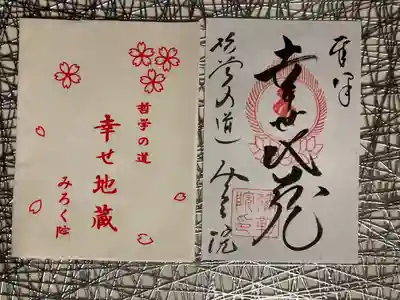 哲学の道
幸せ地蔵
みろく院
奉拝
幸せ地蔵
哲学の道
みろく院